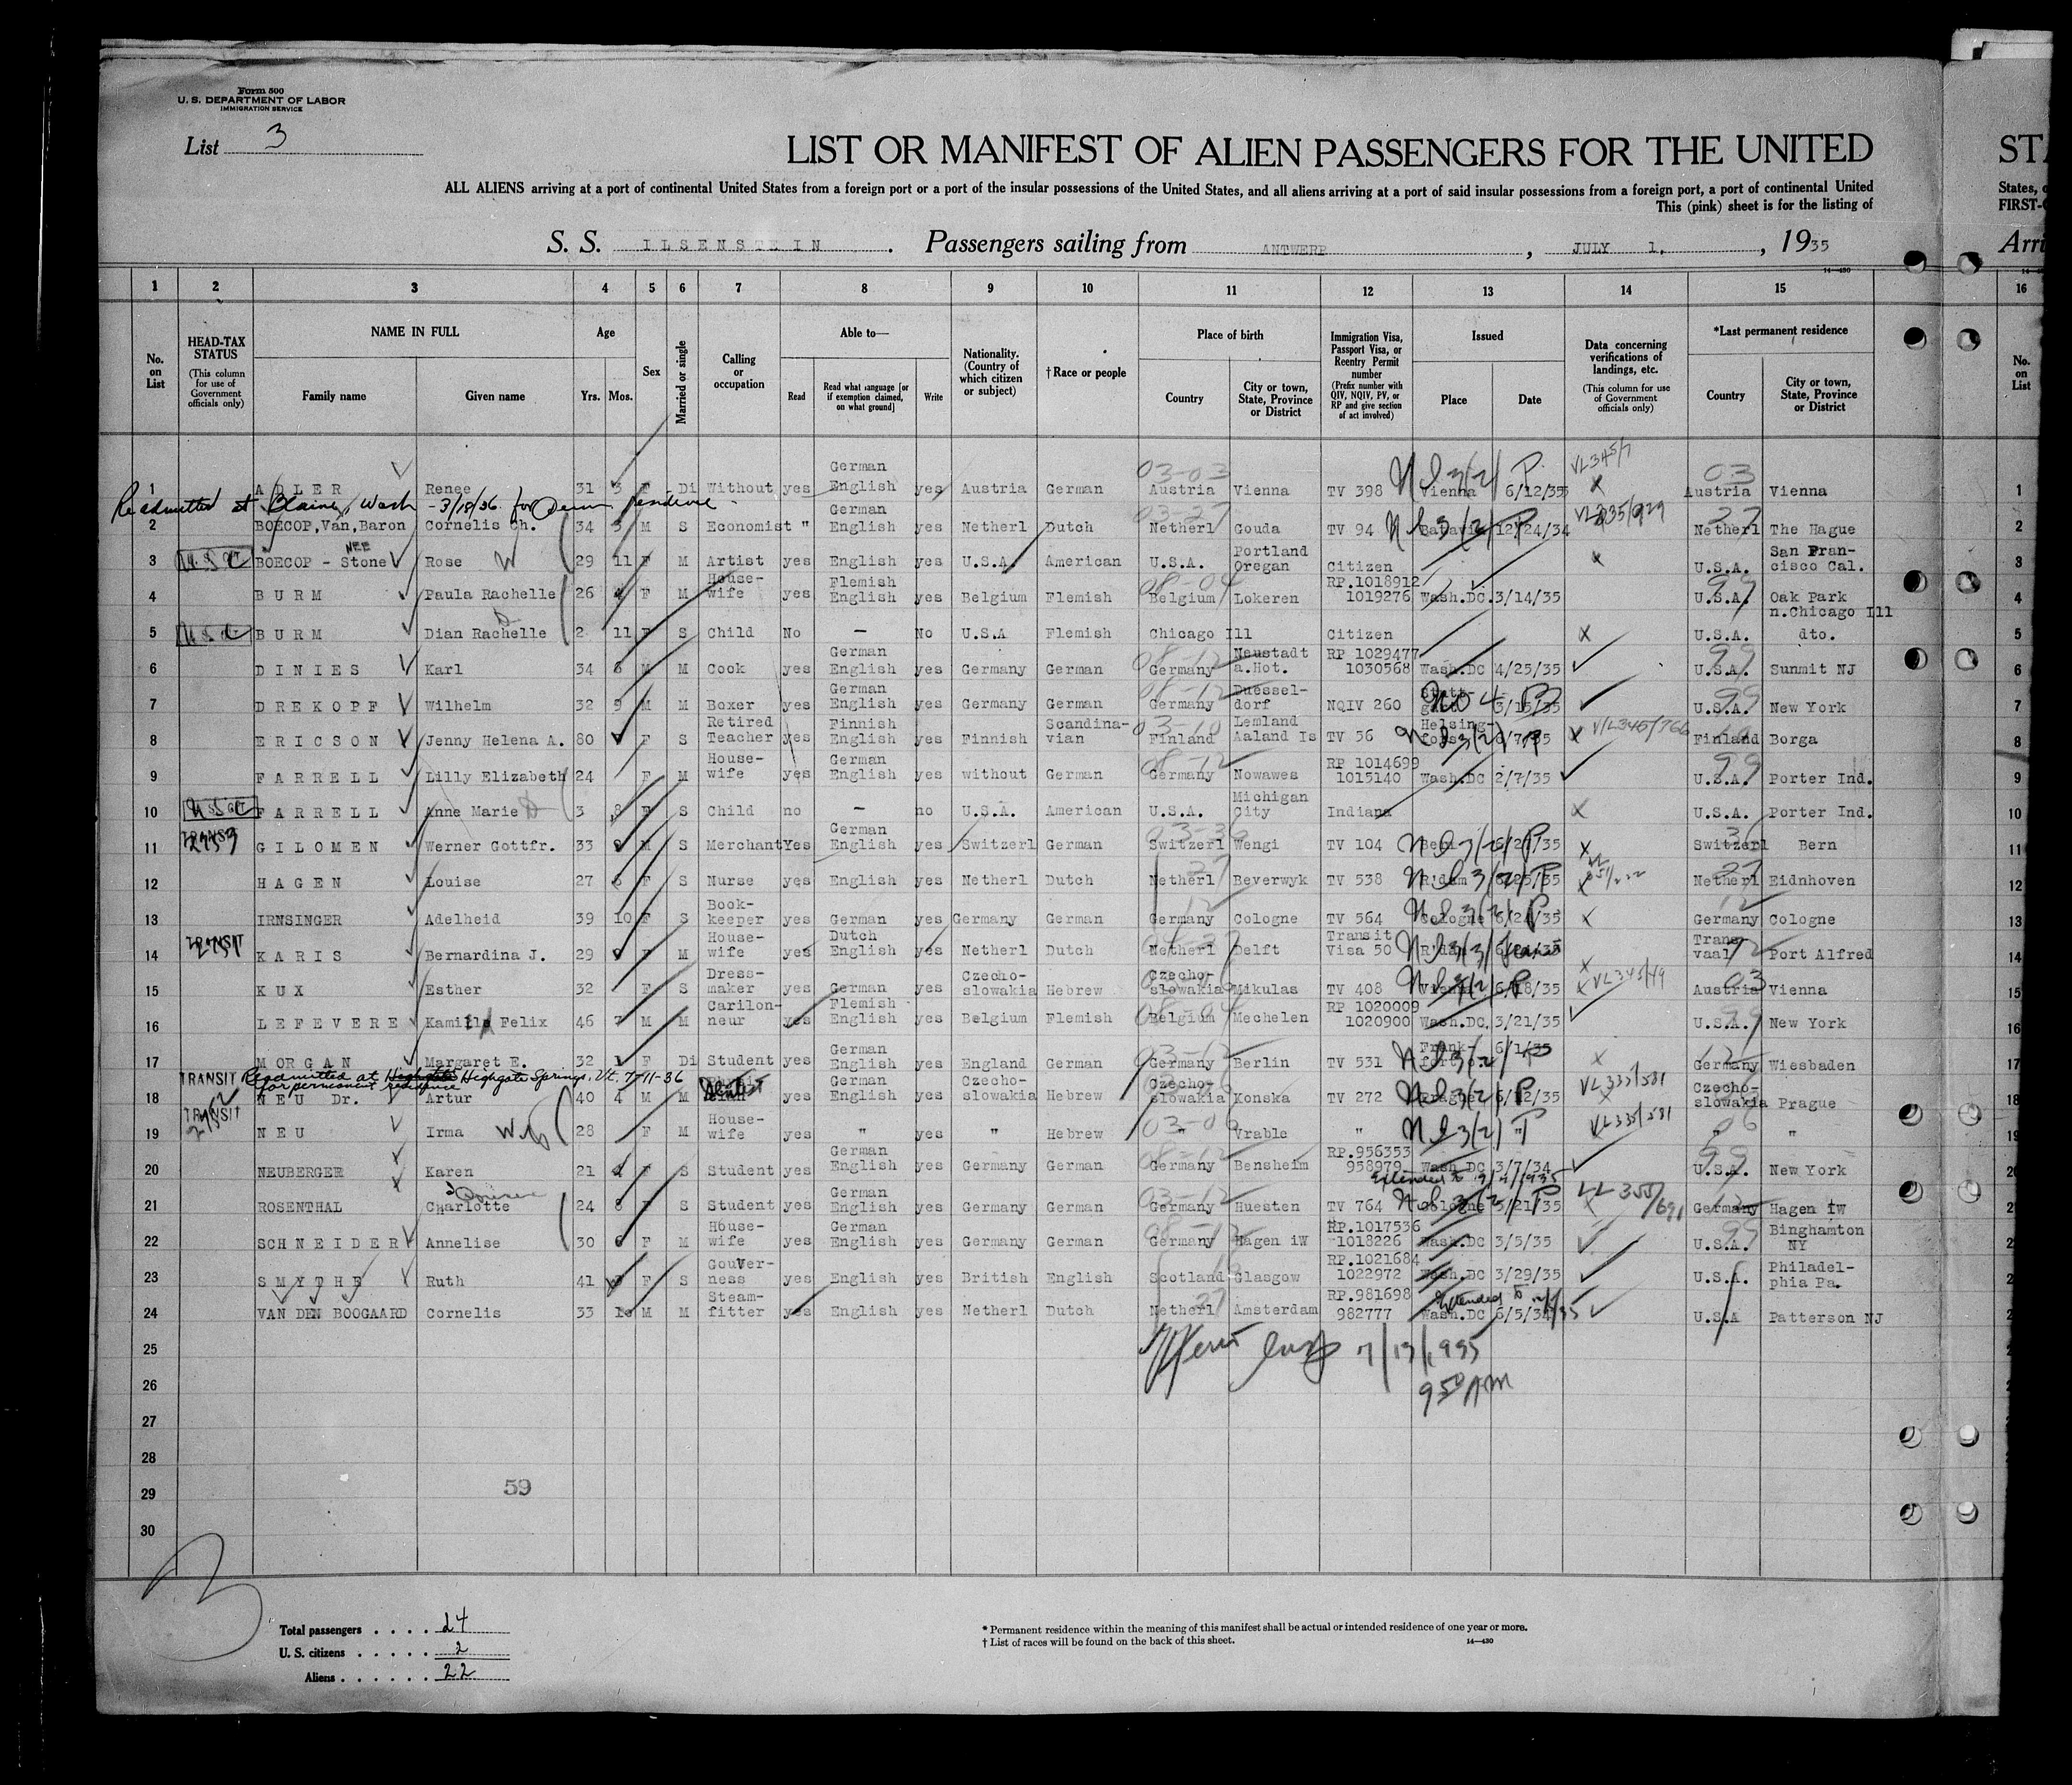 Form 500
U. S. DEPARTMENT OF LABOR
IMMIGRATION SERVICE
List 3
LIST OR MANIFEST OF ALIEN PASSENGERS FOR THE UNITED
ALL ALIENS arriving at a port of continental United States from a foreign port or a port of the insular possessions of the United States, and all aliens arriving at a port of said insular possessions from a foreign port, a port of continental United
This (pink) sheet is for the listing of
S. S. ILSENSTEIN. Passengers sailing from ANTWERP, JULY 1, 1935
1 2 3 4 5 6 7 8 9 10 11 12 13 14 15 16
No. on List
HEAD-TAX STATUS (This column for use of Government officials only)
NAME IN FULL Family name Given name
Age Yrs. Mos.
Sex
Married or single
Calling or occupation
Able to— Read Read what language [or if exemption claimed, on what ground] Write
Nationality. (Country of which citizen or subject)
† Race or people
Place of birth Country City or town, State, Province or District
Immigration Visa, Passport Visa, or Reentry Permit number (Prefix number with QIV, NQIV, PV, or RP and give section of act involved)
Issued Place Date
Data concerning verifications of landings, etc. (This column for use of Government officials only)
*Last permanent residence Country City or town, State, Province or District
No. on List
1 ADLER Renee 31 3 F Di Without yes German English yes Austria German Austria Vienna TV 398 Vienna 6/12/35 Austria Vienna 1
Readmitted at Blaine, Wash - 3/18/36 for
2 BOECOP, Van, Baron Cornelis Ch. 34 3 M S Economist " German English yes Netherl Dutch Netherl Gouda TV 94 Batavia 12/24/34 Netherl The Hague 2
3 BOECOP - Stone NEE Rose W 29 11 F M Artist yes English yes U.S.A. American U.S.A. Portland Oregan Citizen U.S.A. San Fran-cisco Cal. 3
4 BURM Paula Rachelle 26 F M House-wife yes Flemish English yes Belgium Flemish Belgium Lokeren RP.1018912 1019276 Wash.DC. 3/14/35 U.S.A. Oak Park n.Chicago Ill 4
5 BURM Dian Rachelle 2 11 F S Child No — No U.S.A Flemish Chicago Ill Citizen U.S.A. dto. 5
6 DINIES Karl 34 M M Cook yes German English yes Germany German Germany Neustadt a.Hot. RP 1029477 1030568 Wash.DC 4/25/35 U.S.A. Sunmit NJ 6
7 DREKOPF Wilhelm 32 9 M M Boxer yes German English yes Germany German Germany Duessel-dorf NQIV 260 3/15/35 U.S.A. New York 7
8 ERICSON Jenny Helena A. 80 F S Retired Teacher yes Finnish English yes Finnish Scandina-vian Finland Lemland Aaland Is TV 56 Helsing-fors 6/7/35 Finland Borga 8
9 FARRELL Lilly Elizabeth 24 F M House-wife yes German English yes without German Germany Nowawes RP 1014699 1015140 Wash.DC 2/7/35 U.S.A. Porter Ind. 9
10 FARRELL Anne Marie 3 8 F S Child no — no U.S.A. American U.S.A. Michigan City Indiana U.S.A. Porter Ind. 10
11 TRANSIT GILOMEN Werner Gottfr. 33 M S Merchant Yes German English yes Switzerl German Switzerl Wengi TV 104 Switzerl Bern 11
12 HAGEN Louise 27 F S Nurse yes English yes Netherl Dutch Netherl Beverwyk TV 538 R'dam 6/25/35 Netherl Eidnhoven 12
13 IRNSINGER Adelheid 39 10 F S Book-keeper yes German yes Germany German Germany Cologne TV 564 Cologne 6/24/35 Germany Cologne 13
14 TRANSIT KARIS Bernardina J. 29 F M House-wife yes Dutch English yes Netherl Dutch Netherl Delft Transit Visa 50 R'dam Trans-vaal Port Alfred 14
15 KUX Esther 32 F S Dress-maker yes German yes Czecho-slowakia Hebrew Czecho-slowakia Mikulas TV 408 Vienna 6/18/35 Austria Vienna 15
16 LEFEVERE Kamille Felix 46 7 M M Carilon-neur yes Flemish English yes Belgium Flemish Belgium Mechelen RP 1020009 1020900 Wash.DC. 3/21/35 U.S.A. New York 16
17 MORGAN Margaret E. 32 1 F Di Student yes German English yes England German Germany Berlin TV 531 Frank-fort 6/1/35 Germany Wiesbaden 17
TRANSIT Readmitted at Highgate Springs, Vt. 7-11-36 for permanent residence
18 NEU Dr. Artur 40 4 M M yes German English yes Czecho-slowakia Hebrew Czecho-slowakia Konska TV 272 Prague 6/12/35 VL335/581 Czecho-slowakia Prague 18
19 TRANSIT NEU Irma 28 F M House-wife yes " yes " Hebrew " Vrable " " VL335/581 " " 19
20 NEUBERGER Karen 21 4 F S Student yes German English yes Germany German Germany Bensheim RP.956353 958979 Wash DC 3/7/34 U.S.A. New York 20
21 ROSENTHAL Charlotte Louise 24 8 F S Student yes German English yes Germany German Germany Huesten TV 764 Cologne 5/21/35 Germany Hagen iw 21
22 SCHNEIDER Annelise 30 6 F M House-wife yes German English yes Germany German Germany Hagen iW RP.1017536 1018226 Wash.DC 3/5/35 U.S.A. Binghamton NY
23 SMYTHE Ruth 41 F S Gouver-ness yes English yes British English Scotland Glasgow RP.1021684 1022972 Wash.DC 3/29/35 U.S.A. Philadel-phia Pa.
24 VAN DEN BOOGAARD Cornelis 33 10 M M Steam-fitter yes English yes Netherl Dutch Netherl Amsterdam RP.981698 982777 Wash.DC 6/5/34 U.S.A Patterson NJ
25 7/13/1935
26 9 50 AM
27
28
29 59
30
3
Total passengers . . . . 24
U. S. citizens . . . . . 2
Aliens . . . . . . 22
* Permanent residence within the meaning of this manifest shall be actual or intended residence of one year or more.
† List of races will be found on the back of this sheet.
14—430